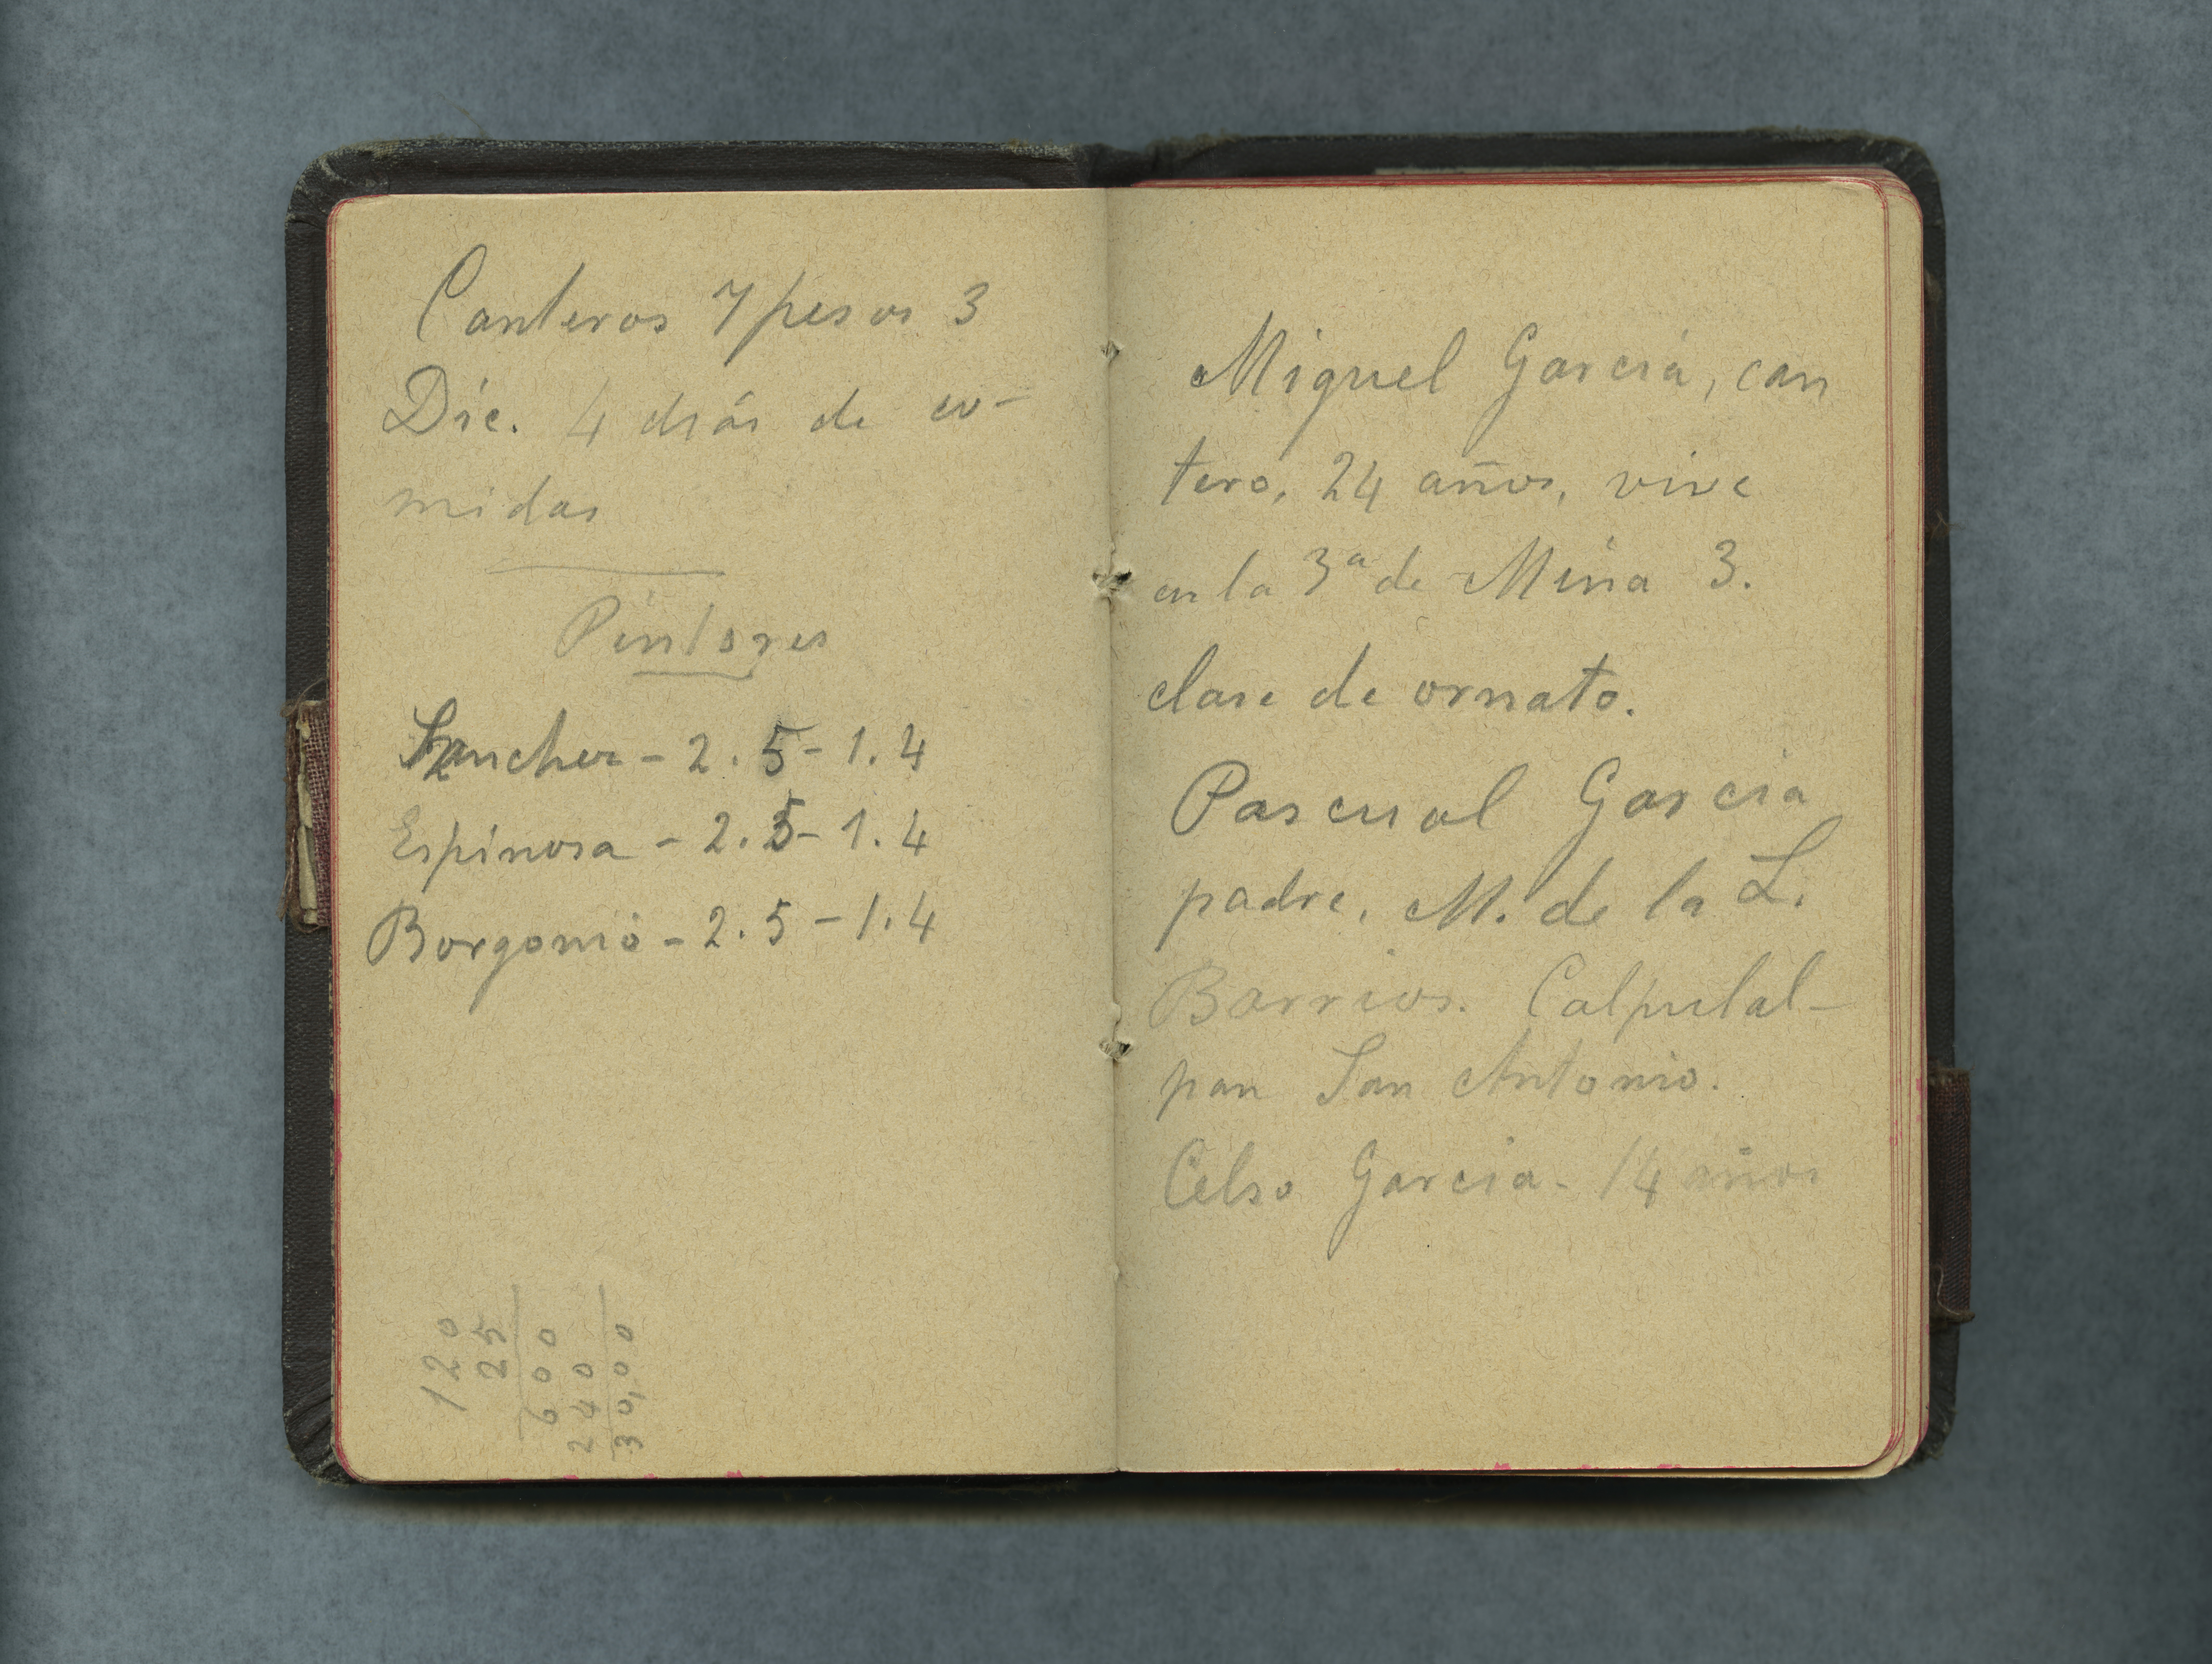 Canteros 7 pesos 3
Dic. 4 días de co-
midas
Pintores
Sanchez - 2.5 - 1.4
Espinosa - 2.5 - 1.4
Borgonio - 2.5 - 1.4
120
25
600
240
30,00
Miguel García, can
tero, 24 años, vive
en la 3a de Mina 3.
clase de ornato.
Pascual Garcia
padre. M. de la L.
Barrios. Calpulal-
pan San Antonio.
Celso Garcia - 14 años